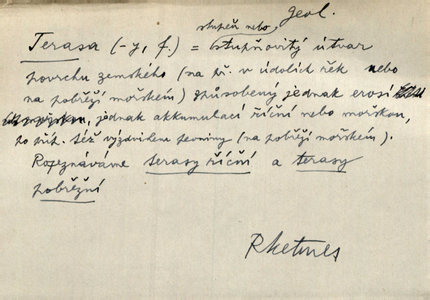 geol.
stupeň nebo
Terasa (-y, f.) = stupňovitý útvar
povrchu zemského (na př. v údolích řek nebo
na pobřeží mořském) způsobený jednak erosí
jednak akkumulací říční nebo mořskou,
po příp. též výzdvihem pevniny (na pobřeží mořském).
Rozeznáváme terasy říční a terasy
pobřežní